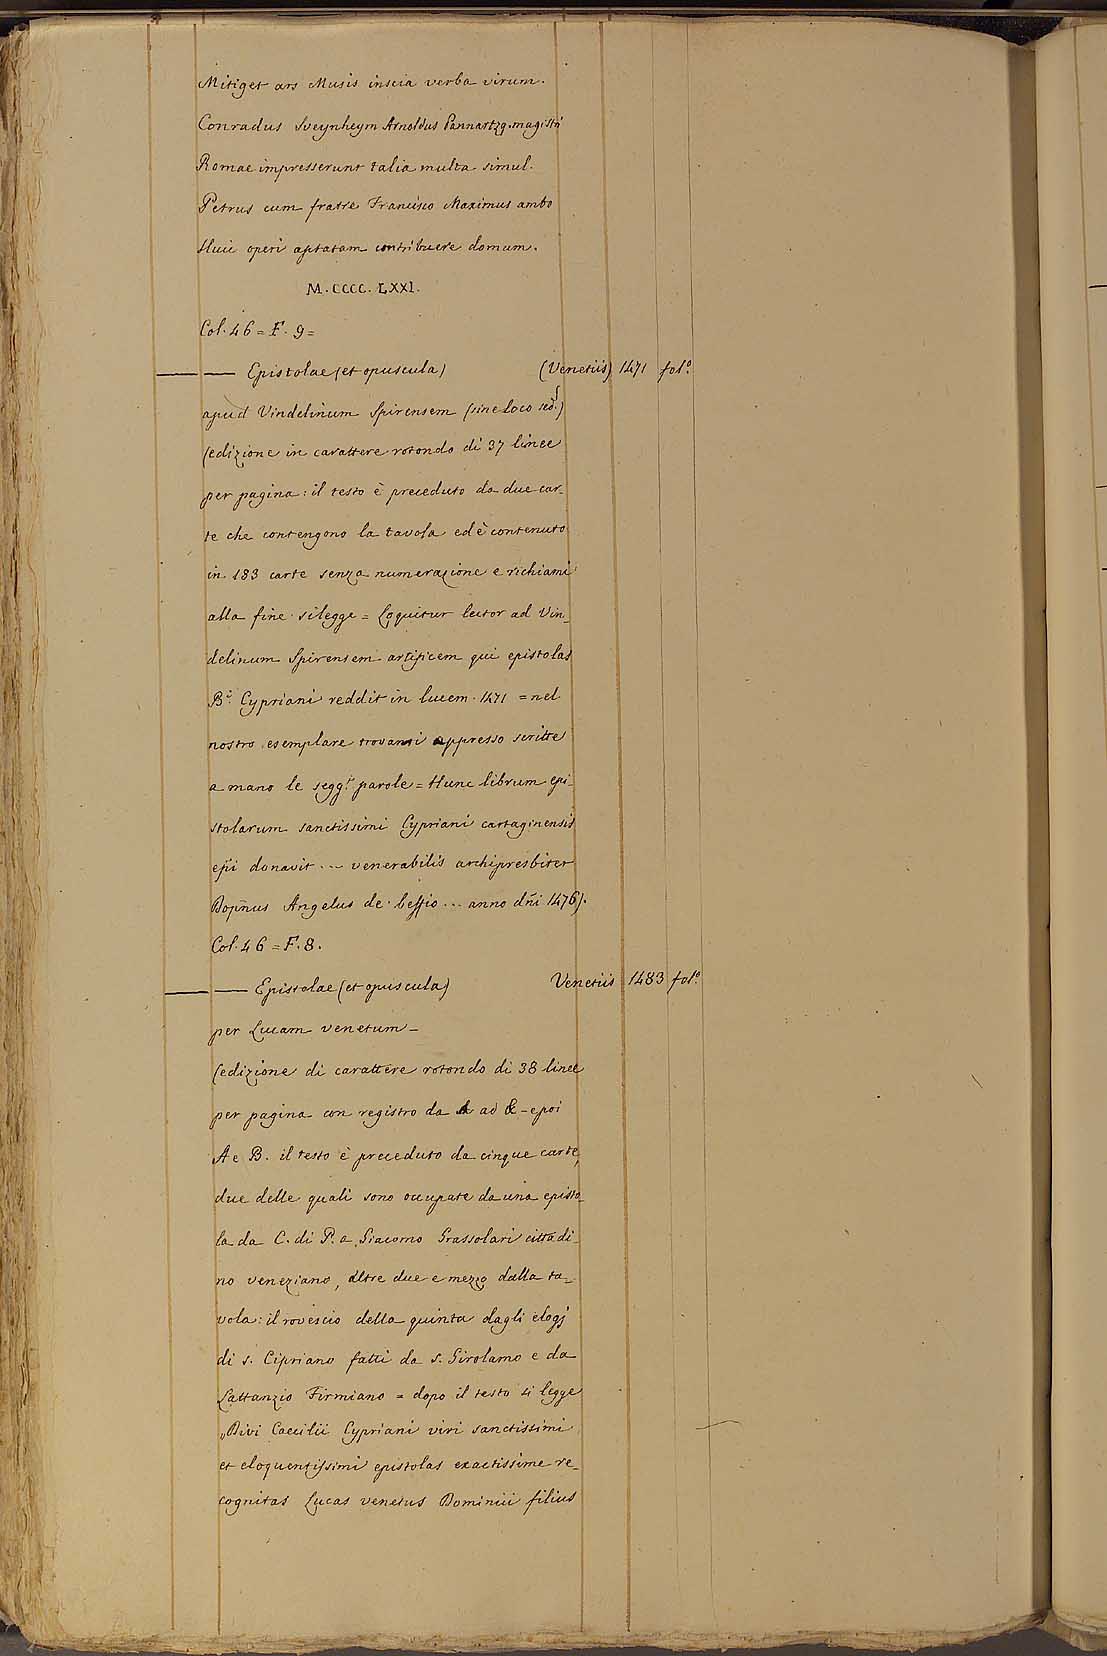 Mitiget ars Musis inscia verba virum.
Conradus Sveynheym Arnoldus Pannartzq. magistri
Romae impresserunt talia multa simul.
Petrus cum fratre Francisco Maximus ambo
Huic operi aptatam contribuere domum.
M. CCCC. LXXI.
Col. 46 = F. 9 =
—— —— Epistolae (et opuscula) (Venetiis) 1471 fol.º
apud Vindelinum Spirensem (sine loco sed)
(edizione in carattere rotondo di 37 linee
per pagina: il testo è preceduto da due car-
te che contengono la tavola ed è contenuto
in 183 carte senza numerazione e richiami
alla fine si legge = Loquitur lector ad Vin-
delinum Spirensem artificem qui epistolas
B.i Cypriani reddit in lucem. 1471 = nel
nostro esemplare trovansi appresso scritte
a mano le segg.i parole = Hunc librum epi-
stolarum sanctissimi Cypriani cartaginensis
epi donavit ... venerabilis archipresbiter
Angelus de ... anno dñi 1476).
Col. 46 = F. 8.
—— —— Epistolae (et opuscula) Venetiis 1483 fol.º
per Lucam venetum —
(edizione di carattere rotondo di 38 linee
per pagina con registro da A ad & - e poi
A e B. il testo è preceduto da cinque carte,
due delle quali sono occupate da una episto-
la da C. di P. a Giacomo Grassolari cittadi-
no veneziano, altre due e mezzo dalla ta-
vola: il rovescio della quinta dagli elogj
di S. Cipriano fatti da S. Girolamo e da
Lattanzio Firmiano = dopo il testo si legge
„Divi Caecilii Cypriani viri sanctissimi
et eloquentissimi epistolas exactissime re-
cognitas Lucas venetus Dominici filius